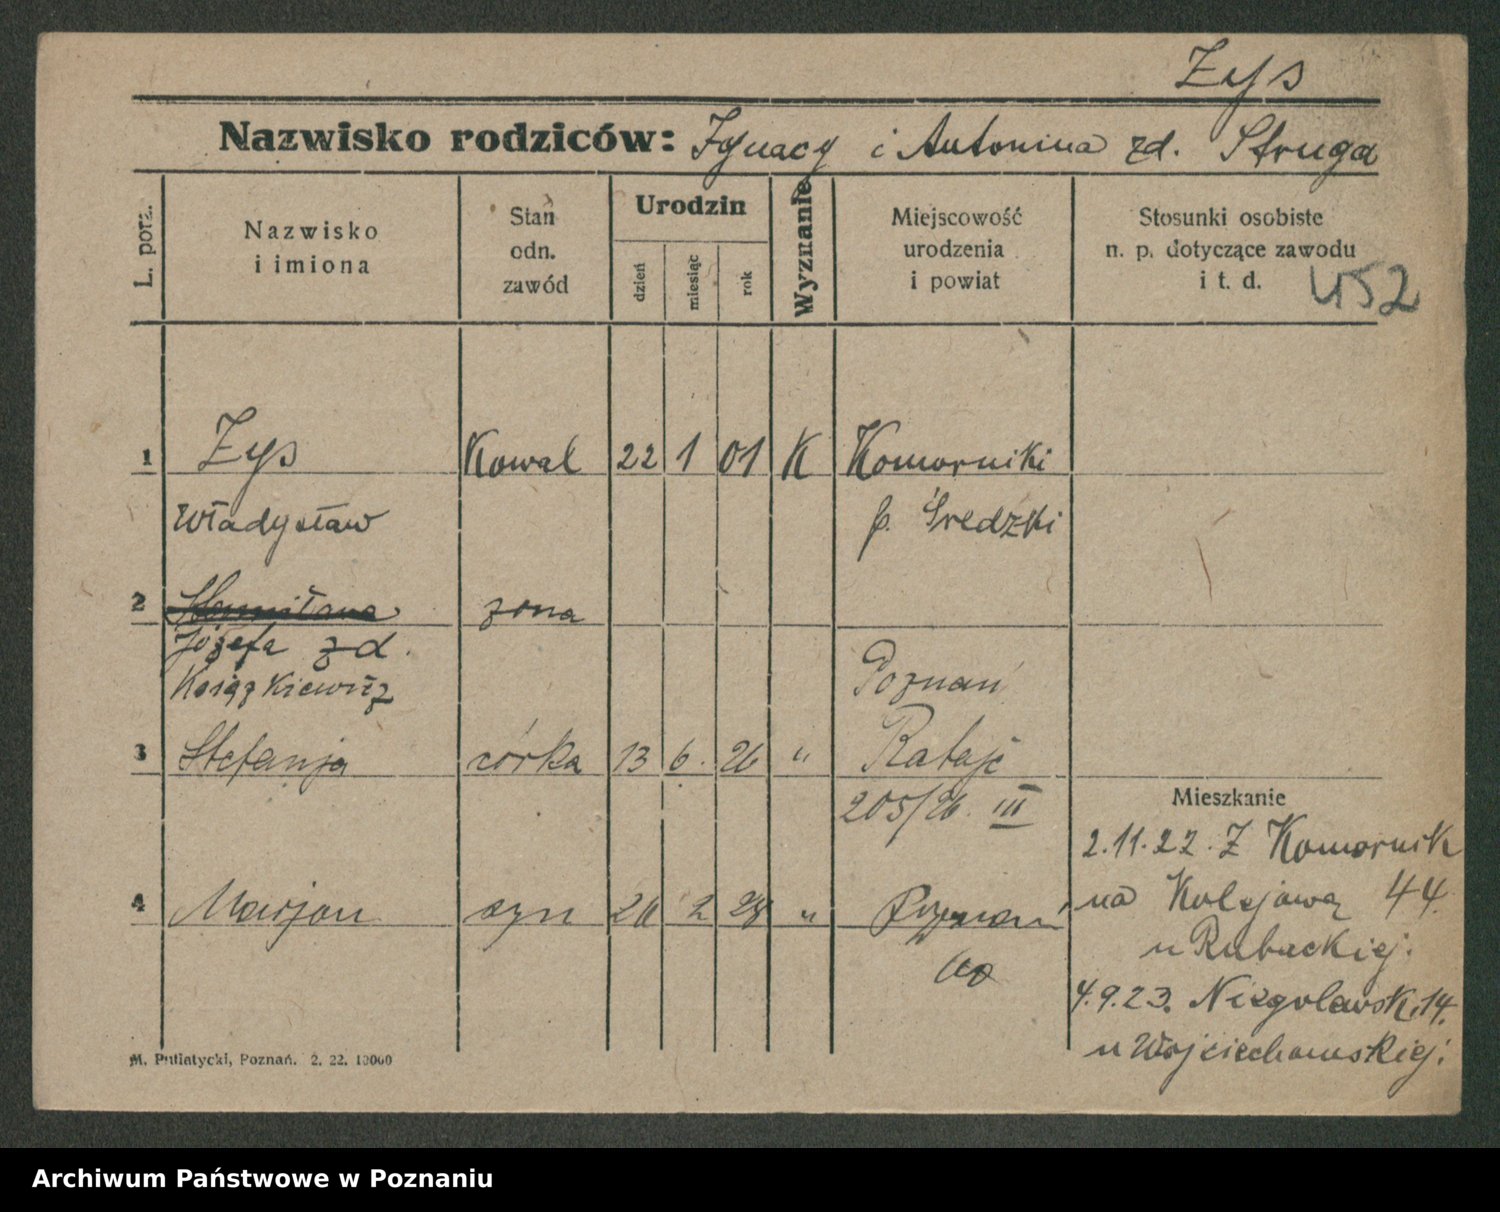 Zys
Nazwisko rodziców: Ignacy i Antonina zd. Struga
L. porz.
Nazwisko
i imiona
Stan
odn.
zawód
Urodzin
dzień
miesiąc
rok
Wyznanie
Miejscowość
urodzenia
i powiat
Stosunki osobiste
n. p. dotyczące zawodu
i t. d.
452
1 Zys Kowal 22 1 01 K Komorniki
Władysław p. Średzki
2 żona
Józefa zd.
Książkiewicz Poznań
3 Stefanja córka 13 6. 26 " Rataje
205/26. III
Mieszkanie
2.11.22. Z Komornik
na Kolejową 44.
u Rubackiej.
4 Marjan syn 26 2 28 " Poznań
4.9.23. Niegolewsk. 14.
u Wojciechowskiej.
M. Putiatycki, Poznań. 2. 22. 10000
Archiwum Państwowe w Poznaniu